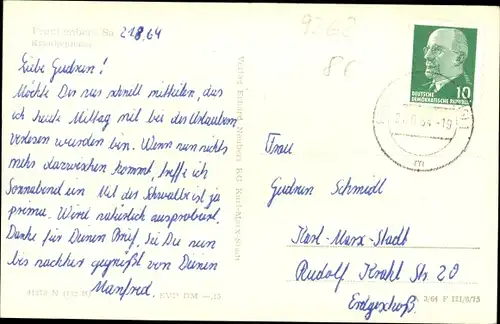 Frankenberg Sa
21.8.64
9262
Liebe Gudrun!
Möchte Dir nur schnell mitteilen, das
ich heute Mittag mit bei der Urlaubern
worden bin. Wenn nun nichts
mehr dazwischen kommt, treffe ich
Sonnabend ein. Mit der Schwalbe ist ja
prima. Wird natürlich ausprobiert.
Danke für Deinen Brief. Sei Du nun
bis nachher gegrüßt von Deinem
Manfred.
EVP DM —,15
Karl-Marx-Stadt
10
DEUTSCHE
DEMOKRATISCHE REPUBLIK
Frau
Gudrun Schmidl
Karl-Marx-Stadt
Rudolf Krahl Str. 20
Erdgeschoß
3/64 F